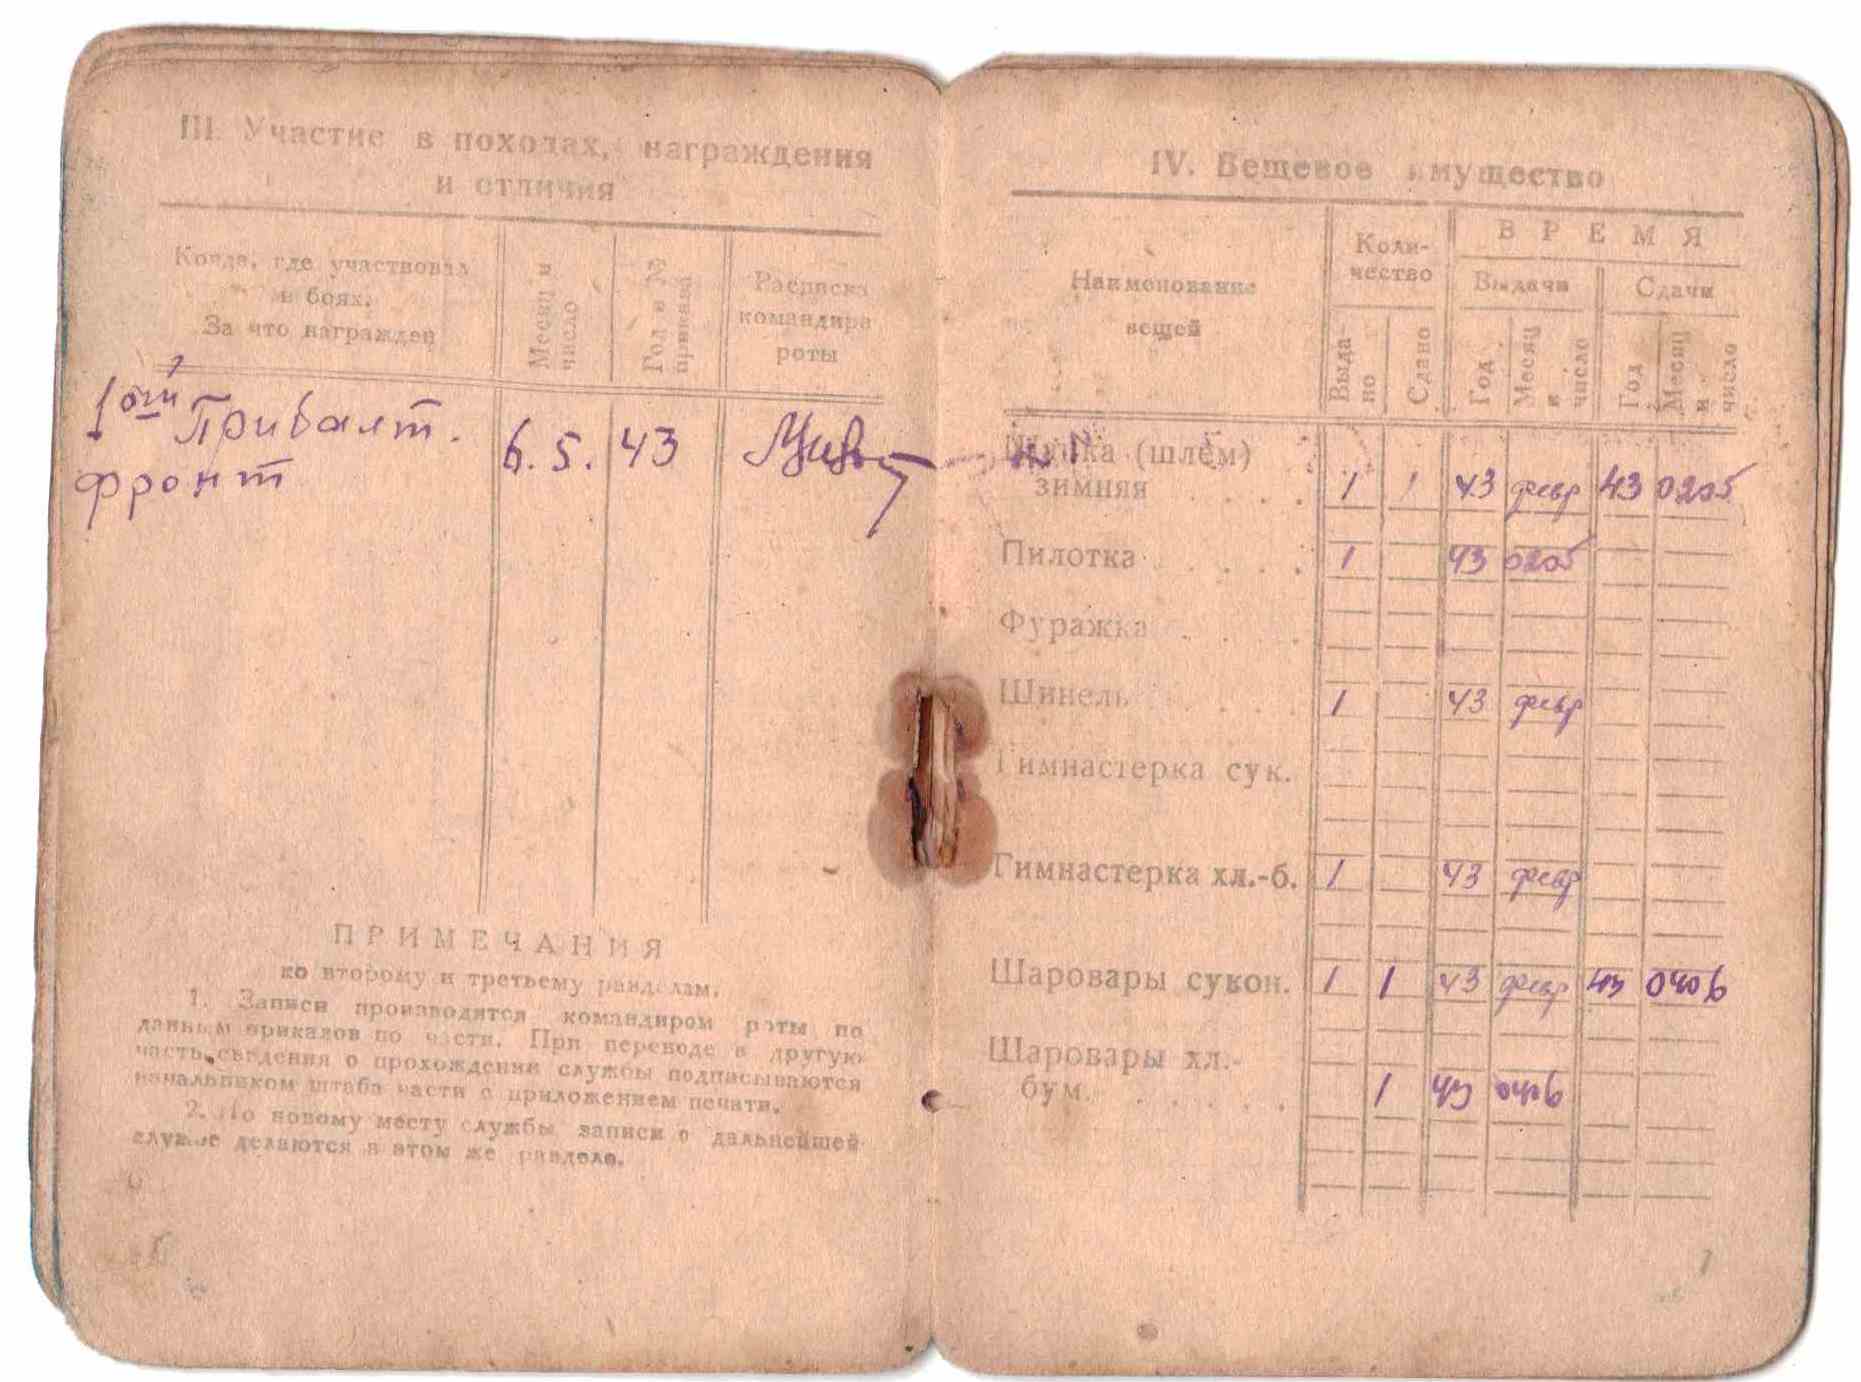 III. Участие в походах, награждения
и отличия
Когда, где участвовал
в боях.
За что награжден
Месяц и
число
Год и №
приказа
Расписка
командира
роты
1ый Прибалт.
фронт
6.5.
43
ПРИМЕЧАНИЯ
ко второму и третьему разделам.
1. Записи производятся командиром роты по
данным приказов по части. При переводе в другую
часть сведения о прохождении службы подписываются
начальником штаба части с приложением печати.
2. По новому месту службы записи о дальнейшей
службе делаются в этом же разделе.
IV. Вещевое имущество
Наименование
вещей
Коли-
чество
ВРЕМЯ
Выдачи
Сдачи
Выда-
но
Сдано
Год
Месяц
и
число
Год
Месяц
и
число
Шапка (шлем)
зимняя . . . . 1 1 43 февр 43 0205
Пилотка . . . . 1 43 0205
Фуражка . . .
Шинель . . . . 1 43 февр
Гимнастерка сук.
Гимнастерка хл.-б. 1 43 февр
Шаровары сукон. 1 1 43 февр 43 0406
Шаровары хл.-
бум. . . . . . 1 43 0406
7